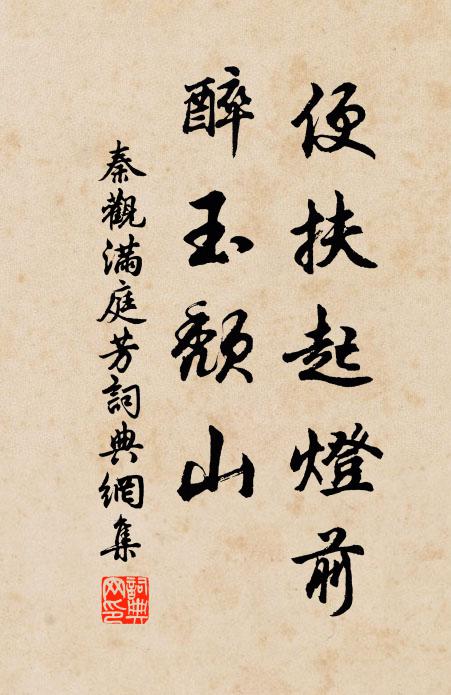 便扶起燈前
醉玉頹山
秦觀滿庭芳詞典網集
詞典網印